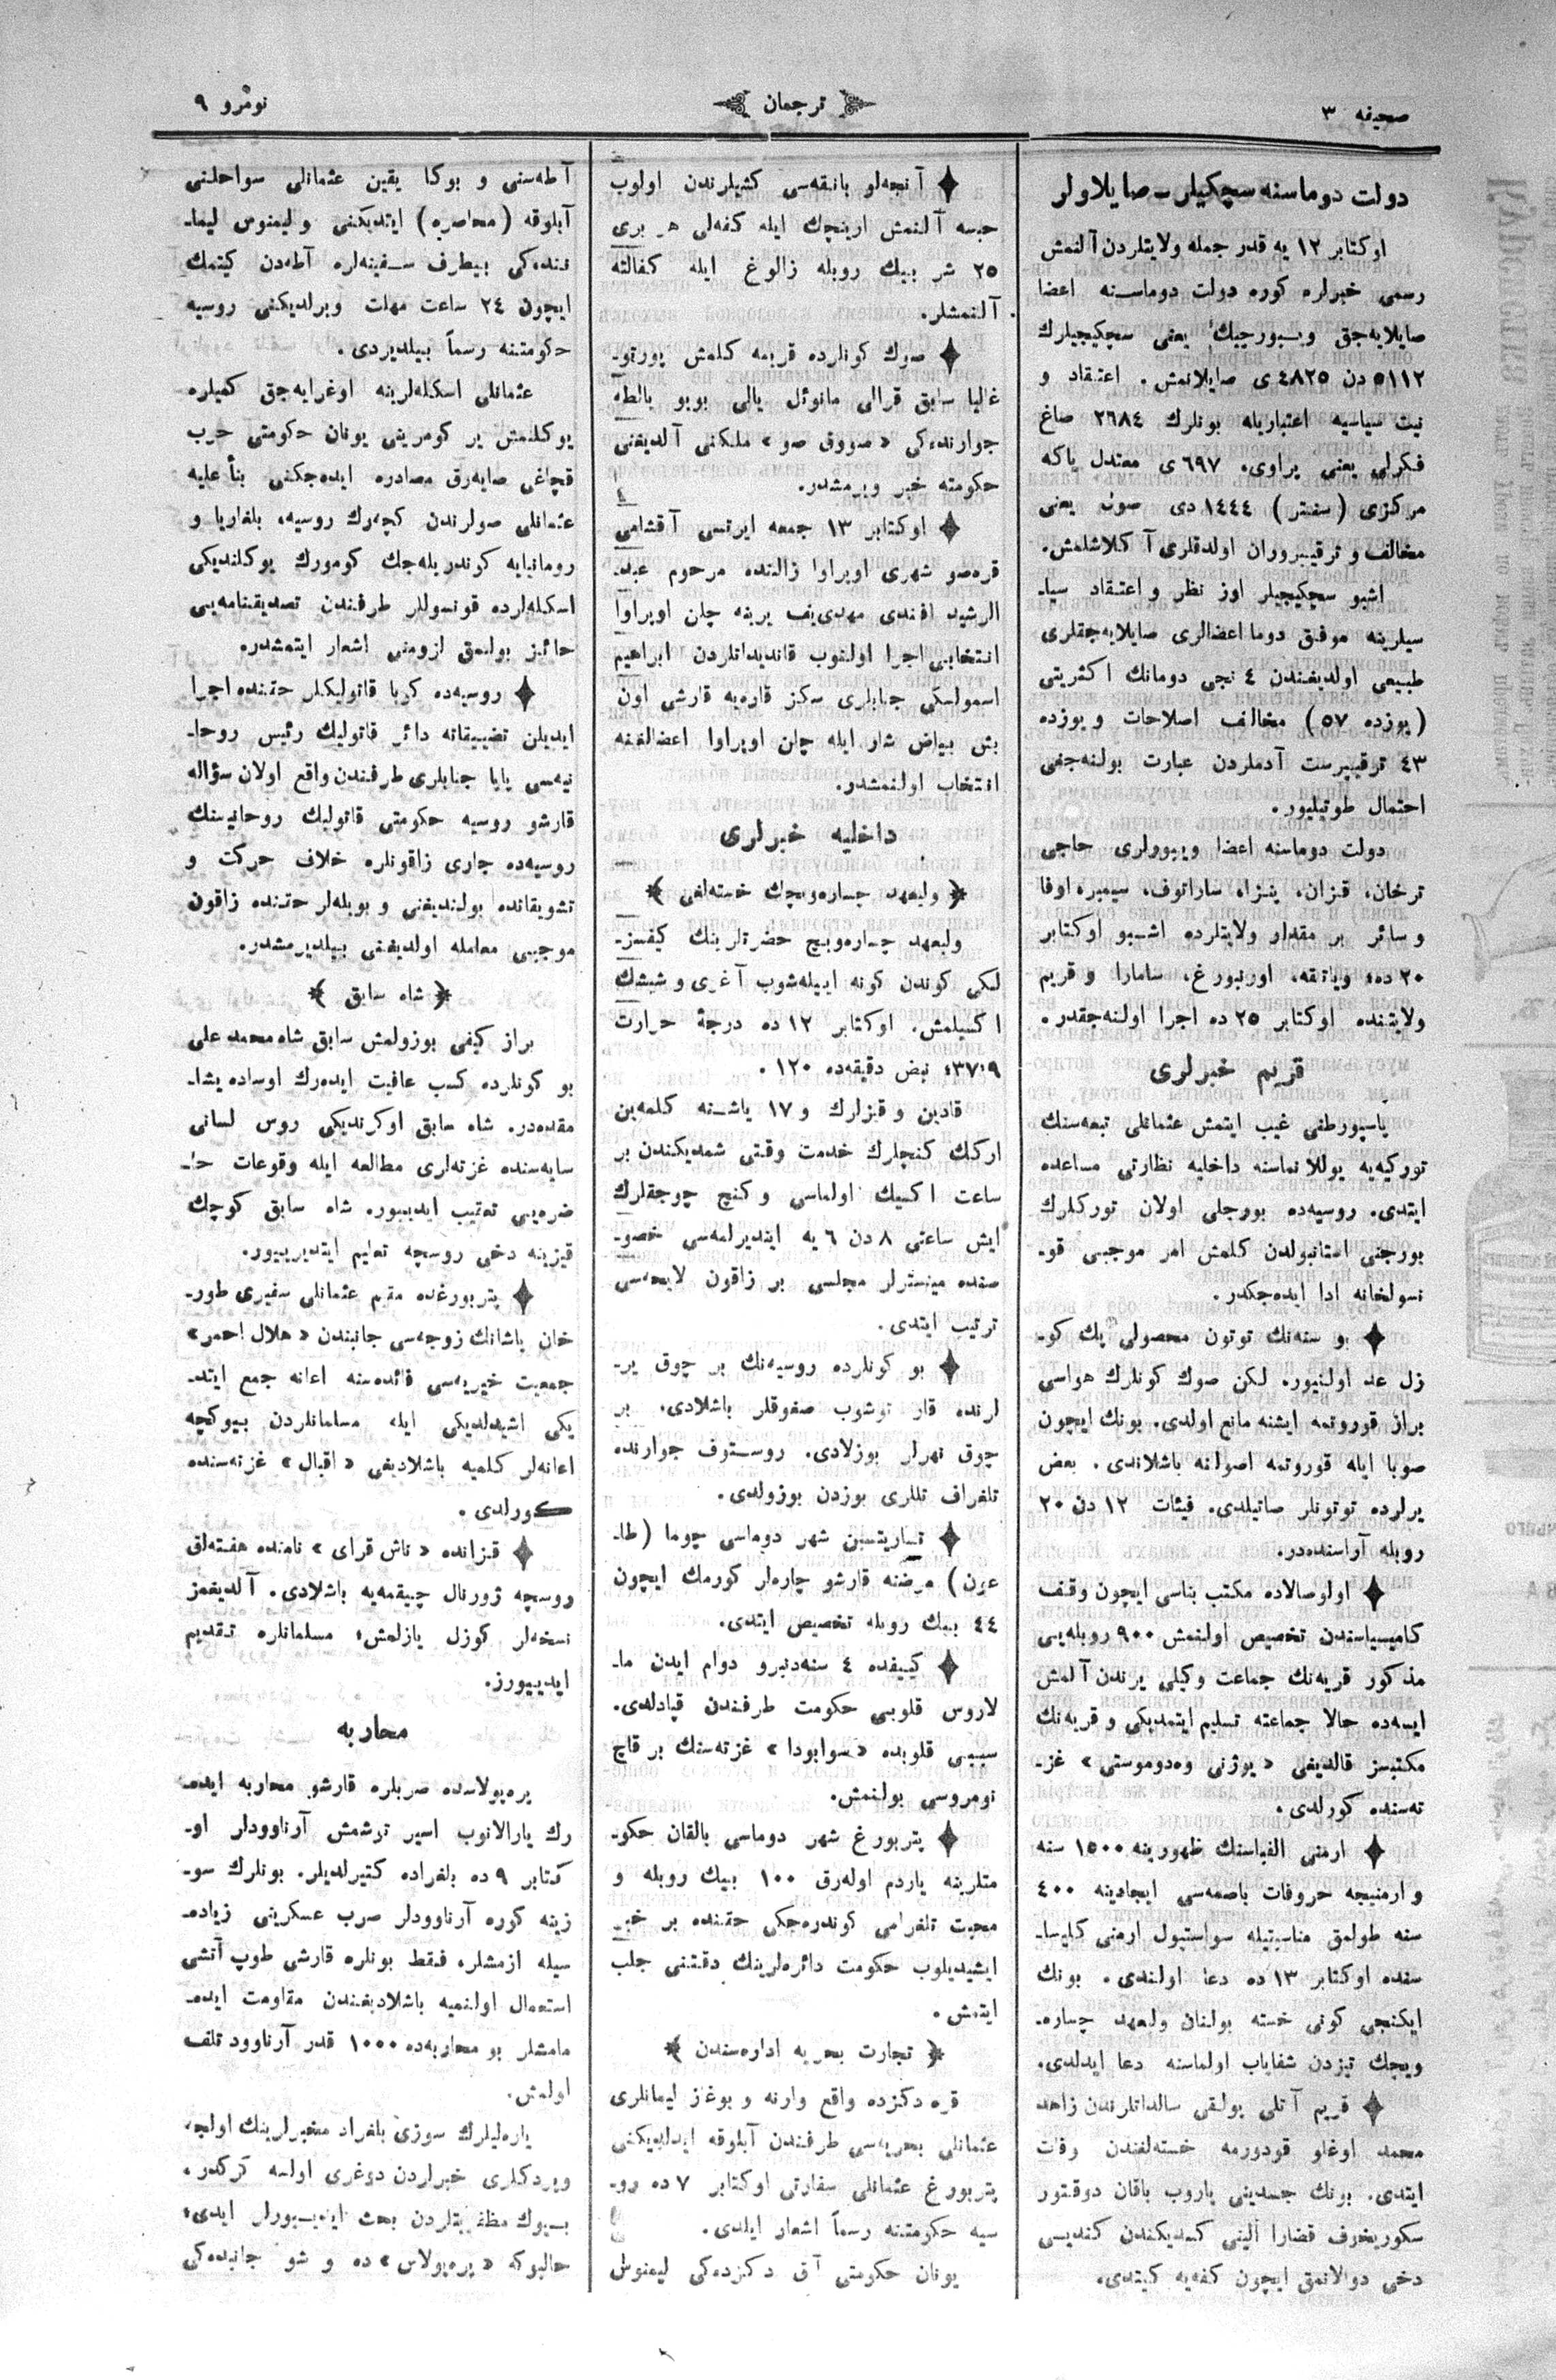 صحیفه ۳
ترجمان
نومرو ۹
دولت دوماسنه سچکیلر ــ صایلاولر
اوکتابر ۱۲ یه قدر جمله ولایتلردن آلنمش
رسمی خبرلره کوره دولت دوماسنه اعضا
صایلایه‌جق ویبورجیك یعنی سچکیجیلرك
۵۱۱۲ دن ٤٨٢٥ ی صایلانمش. اعتقاد و
نیت سیاسیه اعتباریله بونلرك ۲٦٨٤ صاغ
فکرلی یعنی پراوی، ٦٩٧ ی معتدل یاکه
مرکزی (سنتر) ١٤٤٤ دی صول یعنی
مخالف و ترقیپروران اولدقلری آکلاشلمش.
اشبو سچکیجیلر اوز نظر و اعتقاد سیا-
سیلرینه موفق دوما اعضالری صایلایه‌جقلری
طبیعی اولدیغندن ٤ نجی دومانك اکثریتی
(یوزده ٥٧) مخالف اصلاحات و یوزده
٤٣ ترقیپرست آدملردن عبارت بولنه‌جغی
احتمال طوتیلیور.
دولت دوماسنه اعضا ویبورلری حاجی
ترخان، قزان، پنزا، ساراتوف، سیمبر، اوفا
و سائر بر مقدار ولایتلرده اشبو اوکتابر
۲۰ ده؛ ویاتقه، اورنبورغ، سامارا و قریم
ولایتنده اوکتابر ۲٥ ده اجرا اولنه‌جقدر.
قریم خبرلری
پاسپورطنی غیب ایتمش عثمانلی تبعه‌سنك
تورکیه‌یه یوللانماسنه داخلیه نظارتی مساعده
ایتدی. روسیه‌ده بورجلی اولان تورکلرك
بورجنی استانبولدن کلمش امر موجبی قو-
نسولخانه ادا ایده‌جکدر.
بو سنه‌نك توتون محصولی پك کو-
زل عد اولنیور. لکن صوك کونلرك هواسی
براز قوروتمه ایشنه مانع اولدی. بونك ایچون
صوبا ایله قوروتمه اصولنه باشلاندی. بعض
یرلرده توتونلر صاتیلدی. فیئات ۱۲ دن ۲۰
روبله آراسنده‌در.
اولوصالاده مکتب بناسی ایچون وقف
کامیسیاسندن تخصیص اولنمش ٩٠٠ روبله‌یی
مذکور قریه‌نك جماعت وکیلی یرندن آلمش
ایسه‌ده حالا جماعته تسلیم ایتمدیکی و قریه‌نك
مکتبسز قالدیغی «یوژنی وه‌دوموستی» غز-
ته‌سنده کورلدی.
ارمنی الفباسنك ظهورینه ١٥٠٠ سنه
و ارمنیجه حروفات باصمه‌سی ایجادینه ٤٠٠
سنه طولمق مناسبتیله سواستپول ارمنی کلیسا-
سنده اوکتابر ١٣ ده دعا اولندی. بونك
ایکنجی کونی خسته بولنان ولیعهد چساره-
ویچك تیزدن شفایاب اولماسنه دعا ایدلدی.
قریم آتلی پولقی سالداتلرندن زاهد
محمد اوغلو قودورمه خسته‌لغندن وفات
ایتدی. بونك جسدینی یاروب باقان دوقتور
سکوریخوف قضارا الینی کسدیکندن کندیسی
دخی دوالانمق ایچون کفه‌یه کیتدی.
آنجه‌لو بانقه‌سی کشیلرندن اولوب
حبسه آلنمش ارینچك ایله کفه‌لی هر بری
۲٥ شر بیك روبله زالوغ ایله کفالته
آلنمشلر.
صوك کونلرده قریمه کلمش پورتو-
غالیا سابق قرالی مانوئل یالی بویو یالطه
جوارنده‌کی «صووق صو» ملکنی آلدیغنی
حکومته خبر ویرمشدر.
اوکتابر ١٣ جمعه ایرتسی آقشامی
قره‌صو شهری اوپراوا زالنده مرحوم عبد-
الرشید افندی مهدی‌یف یرینه چلن اوپراوا
انتخابی اجرا اولنوب قاندیداتلردن ابراهیم
اسمولسکی جنابلری سکز قاره‌یه قارشی اون
بش بیاض شار ایله چلن اوپراوا اعضالغنه
انتخاب اولنمشدر.
داخلیه خبرلری
ولیعهد چساره‌ویچك خسته‌لغی
ولیعهد چساره‌ویچ حضرتلرینك کیفسز-
لکی کوندن کونه اییله‌شوب آغری و شیشك
اکسیلمش. اوکتابر ۱۲ ده درجۀ حرارت
٣٧،٩؛ نبض دقیقه‌ده ۱۲۰.
قادین و قیزلرك و ١٧ یاشنه کلمه‌ین
ارکك کنجلرك خدمت وقتی شمدیکندن بر
ساعت اکسیك اولماسی و کنچ چوجقلرك
ایش ساعتی ٨ دن ٦ یه ایندیرلمه‌سی خصو-
صنده مینسترلر مجلسی بر زاقون لایحه‌سی
ترتیب ایتدی.
بو کونلرده روسیه‌نك بر چوق یر-
لرنده قار توشوب صغوقلر باشلادی. بر
چوق نهرلر بوزلادی. روستوف جوارنده
تلغراف تللری بوزدن بوزولدی.
تساریتسین شهر دوماسی چوما (طا-
عون) مرضنه قارشو چاره‌لر کورمك ایچون
٤٤ بیك روبله تخصیص ایتدی.
کییفده ٤ سنه‌دنبرو دوام ایدن ما-
لاروس قلوبی حکومت طرفندن قپادلدی.
سببی قلوبده «سوابودا» غزته‌سنك بر قاچ
نومروسی بولنمش.
پتربورغ شهر دوماسی بالقان حکو-
متلرینه یاردم اوله‌رق ۱۰۰ بیك روبله و
محبت تلغرامی کوندره‌جکی حقنده بر خبر
ایشیدیلوب حکومت دائره‌لرینك دقتنی جلب
ایتمش.
تجارت بحریه اداره‌سندن
قره دکزده واقع وارنه و بوغز لیمانلری
عثمانلی بحریه‌سی طرفندن آبلوقه ایدلدیکنی
پتربورغ عثمانلی سفارتی اوکتابر ٧ ده رو-
سیه حکومتنه رسماً اشعار ایلدی.
یونان حکومتی آق دکزده‌کی لیمنوس
آطه‌سنی و بوکا یقین عثمانلی سواحلنی
آبلوقه (محاصره) ایتدیکنی و لیمنوس لیما-
ننده‌کی بیطرف سفینه‌لره آطه‌دن کیتمك
ایچون ٢٤ ساعت مهلت ویرلدیکنی روسیه
حکومتنه رسماً بیلدیردی.
عثمانلی اسکله‌لرینه اوغرایه‌جق کمیلره
یوکلنمش یر کومرینی یونان حکومتی حرب
قچاغی صایه‌رق مصادره ایده‌جکنی بنأ علیه
عثمانلی صولرندن کچه‌رك روسیه، بلغاریا و
رومانیایه کوندریله‌جك کومورك یوکلندیکی
اسکله‌لرده قونسوللر طرفندن تصدیقنامه‌یی
حائز بولنمق لزومنی اشعار ایتمشدر.
روسیه‌ده کویا قاتولیکلر حقنده اجرا
ایدیلن تضییقاته دائر قاتولیك رئیس روحا-
نیه‌سی پاپا جنابلری طرفندن واقع اولان سؤاله
قارشو روسیه حکومتی قاتولیك روحانیسنك
روسیه‌ده جاری زاقونلره خلاف حرکت و
تشویقاتده بولندیغنی و بویله‌لر حقنده زاقون
موجبی معامله اولدیغنی بیلدیرمشدر.
شاه سابق
براز کیفی بوزولمش سابق شاه محمد علی
بو کونلرده کسب عافیت ایده‌رك اوساده یشا-
مقده‌در. شاه سابق اوکرندیکی روس لسانی
سایه‌سنده غزته‌لری مطالعه ایله وقوعات حا-
ضره‌یی تعقیب ایدییور. شاه سابق کوچك
قیزینه دخی روسچه تعلیم ایتدیرییور.
پتربورغده مقیم عثمانلی سفیری طور-
خان پاشانك زوجه‌سی جانبندن «هلال احمر»
جمعیت خیریه‌سی فائده‌سنه اعانه جمع ایتد-
یکی اشیدلدیکی ایله مسلمانلردن بیوکچه
اعانه‌لر کلمیه باشلادیغی «اقبال» غزته‌سنده
کورلدی.
قزانده «ناش قرای» نامنده هفته‌لق
روسچه ژورنال چیقمه‌یه باشلادی. آلدیغمز
نسخه‌لر کوزل یازلمش؛ مسلمانلره تقدیم
ایدییورز.
محاربه
پره‌پولاسده صربلره قارشو محاربه ایده-
رك یارالانوب اسیر ترشمش آرناوودلر او-
کتابر ٩ ده بلغراده کتیرلدیلر. بونلرك سو-
زینه کوره آرناوودلر صرب عسکرینی زیاده-
سیله ازمشلر، فقط بونلره قارشی طوپ آتشی
استعمال اولنمیه باشلادیغندن مقاومت ایده-
مامشلر بو محاربه‌ده ١٠٠٠ قدر آرناوود تلف
اولمش.
یاره‌لیلرك سوزی بلغراد مخبرلرینك اولجه
ویردکلری خبرلردن دوغری اولسه کرکدر،
بیوك مظفریتلردن بحث ایدییورلر ایدی؛
حالبوکه «پره‌پولاس» ده و شو جانبده‌کی